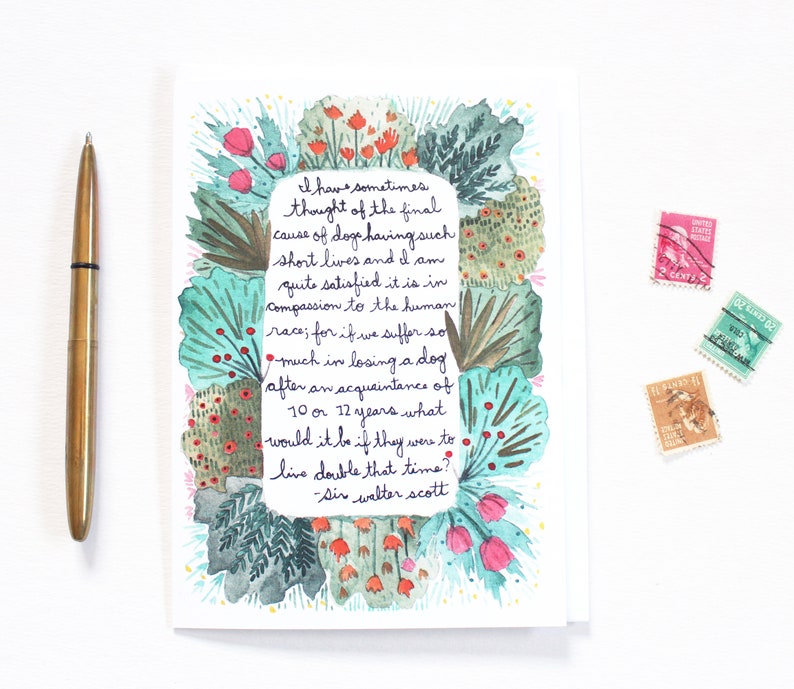 I have sometimes
thought of the final
cause of dogs having such
short lives and I am
quite satisfied it is in
compassion to the human
race; for if we suffer so
much in losing a dog
after an acquaintance of
10 or 12 years what
would it be if they were to
live double that time?
-Sir Walter Scott
UNITED
STATES
POSTAGE
2 CENTS 2
20 CENTS 20
1½ CENTS 1½
UNITED STATES
POSTAGE